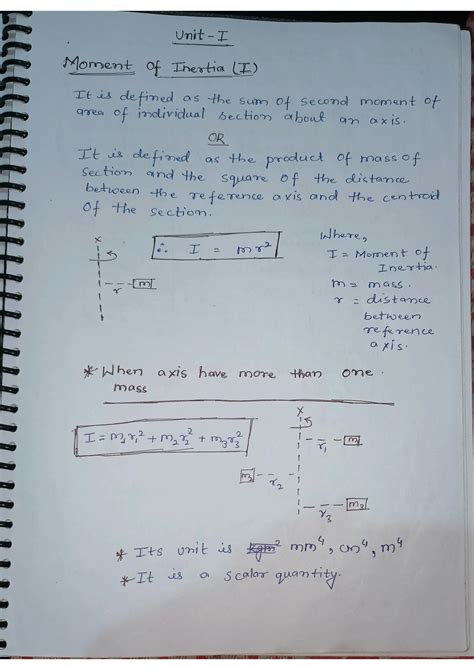 Unit-I
Moment of Inertia (I)
It is defined as the sum of second moment of
area of individual section about an axis.
OR
It is defined as the product of mass of
section and the square of the distance
between the reference axis and the centroid
of the section.
∴ I = mr²
x
r m
Where,
I = Moment of
Inertia.
m = mass.
r = distance
between
reference
axis.
* When axis have more than one
mass
I = m₁r₁² + m₂r₂² + m₃r₃²
x
r₁ m₁
r₂
r₃
* Its unit is kgm² mm⁴, cm⁴, m⁴
* It is a scalar quantity.